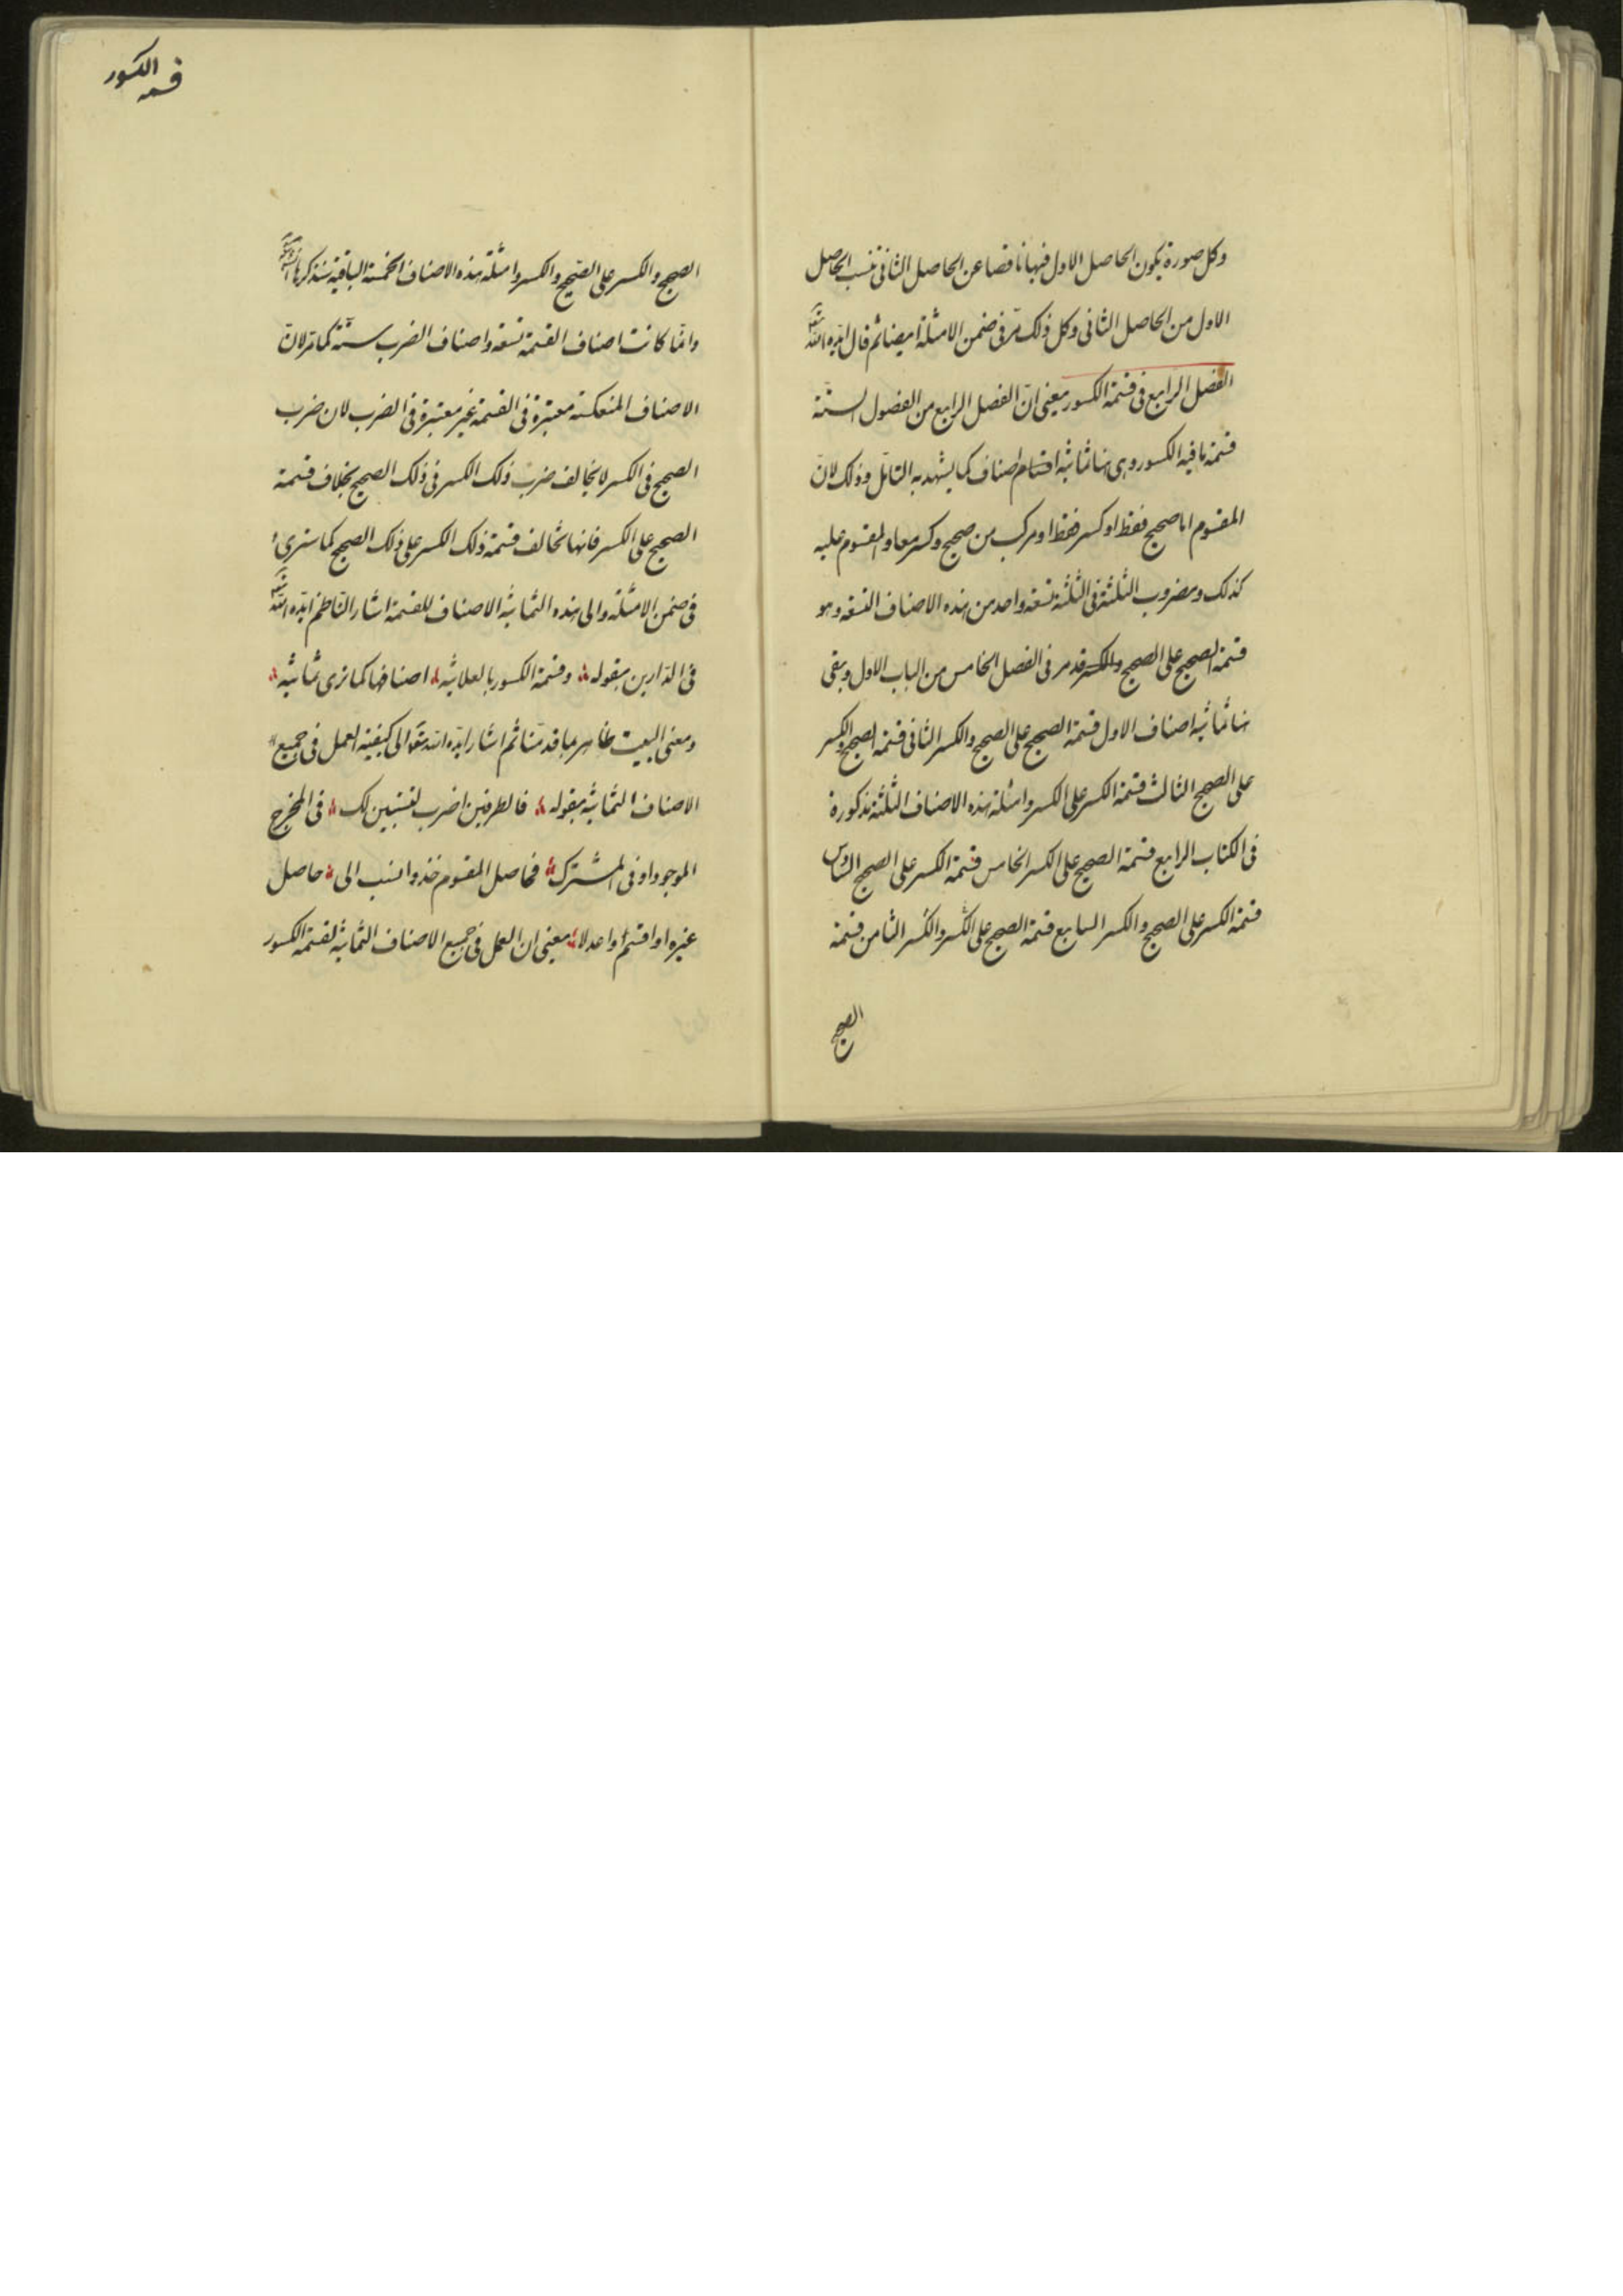 وكل صورة يكون الحاصل الاول فيها ناقصا عن الحاصل الثانى تنسب الحاصل
الاول من الحاصل الثانى وكل ذلك مرّ فى ضمن الامثلة ايضا ثم قال ايّده الله
الفصل الرابع فى قسمة الكسور يعنى انّ الفصل الرابع من الفصول الستة
قسمة ما فيه الكسور وهى هنا ثمانية اقسام اصناف كما يشهد به التأمل وذلك لانّ
المقسوم اما صحيح فقط او كسر فقط او مركب من صحيح وكسر معا والمقسوم عليه
كذلك ومضروب الثلثة فى الثلثة تسعة واحد من هذه الاصناف التسعة وهو
قسمة الصحيح على الصحيح والكسر قد مر فى الفصل الخامس من الباب الاول وبقى
هنا ثمانية اصناف الاول قسمة الصحيح على الصحيح والكسر الثانى قسمة الصحيح والكسر
على الصحيح الثالث قسمة الكسر على الكسر وامثلة هذه الاصناف الثلثة مذكورة
فى الكتاب الرابع قسمة الصحيح على الكسر الخامس قسمة الكسر على الصحيح السادس
قسمة الكسر على الصحيح والكسر السابع قسمة الصحيح على الكسر والكسر الثامن قسمة
الصحيح
قسمة الكسور
الصحيح والكسر على الصحيح والكسر وامثلة هذه الاصناف الخمسة الباقية سنذكرها
وانّما كانت اصناف القسمة تسعة واصناف الضرب ستّة كما مرّ لانّ
الاصناف المنعكسة معتبرة فى القسمة غير معتبرة فى الضرب لان ضرب
الصحيح فى الكسر لا يخالف ضرب ذلك الكسر فى ذلك الصحيح بخلاف قسمة
الصحيح على الكسر فانها تخالف قسمة ذلك الكسر على ذلك الصحيح كما سترى
فى ضمن الامثلة والى هذه الثمانية الاصناف للقسمة اشار النّاظم ايّده الله
فى الدّارين بقوله وقسمة الكسور بالعلانيه اصنافها كما ترى ثمانيه
ومعنى البيت ظاهر مما قدمنا ثم اشار ايّده الله تعالى الى كيفية العمل فى جميع
الاصناف الثمانية بقوله فالطرفين اضرب لتستبين لك فى المخرج
الموجود او فى المشترك فحاصل المقسوم خذ وانسب الى حاصل
غيره او اقسم او اعدلا يعنى ان العمل فى جميع الاصناف الثمانية لقسمة الكسور